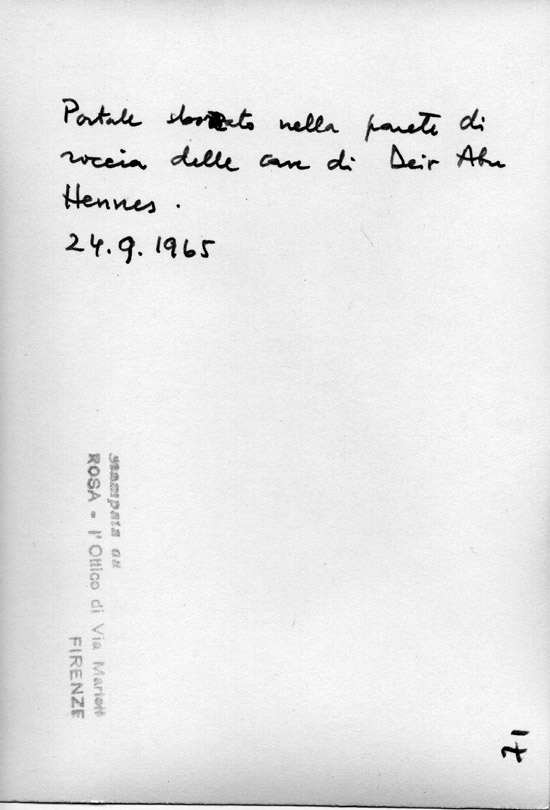 Portale sbozzato nella parete di
roccia delle cave di Deir Abu
Hennes.
24.9.1965
stampata da
ROSA - l'Ottico di Via Mariotti
FIRENZE
71